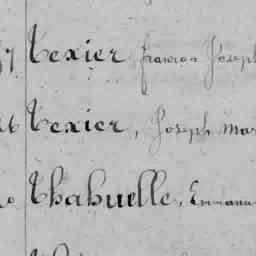 7 Texier François Joseph
26 Texier, Joseph Mar
Thahuelle, Emmanu